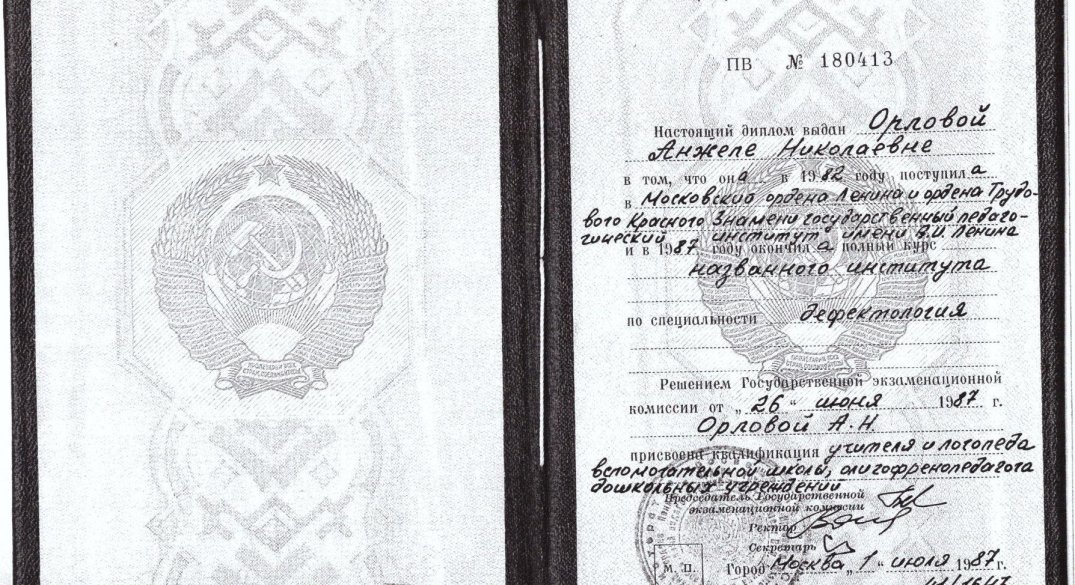 ПВ № 180413
Настоящий диплом выдан Орловой
Анжеле Николаевне
в том, что она в 1982 году поступила
в Московский ордена Ленина и ордена Трудо-
вого Красного Знамени государственный педаго-
гический институт имени В.И. Ленина
и в 1987 году окончила полный курс
названного института
по специальности дефектология
Решением Государственной экзаменационной
комиссии от „26" июня 1987 г.
Орловой А.Н.
присвоена квалификация учителя и логопеда
вспомогательной школы, олигофренопедагога
дошкольных учреждений
Председатель Государственной
экзаменационной комиссии
Ректор
Секретарь
М. П. Город Москва „1" июля 1987 г.